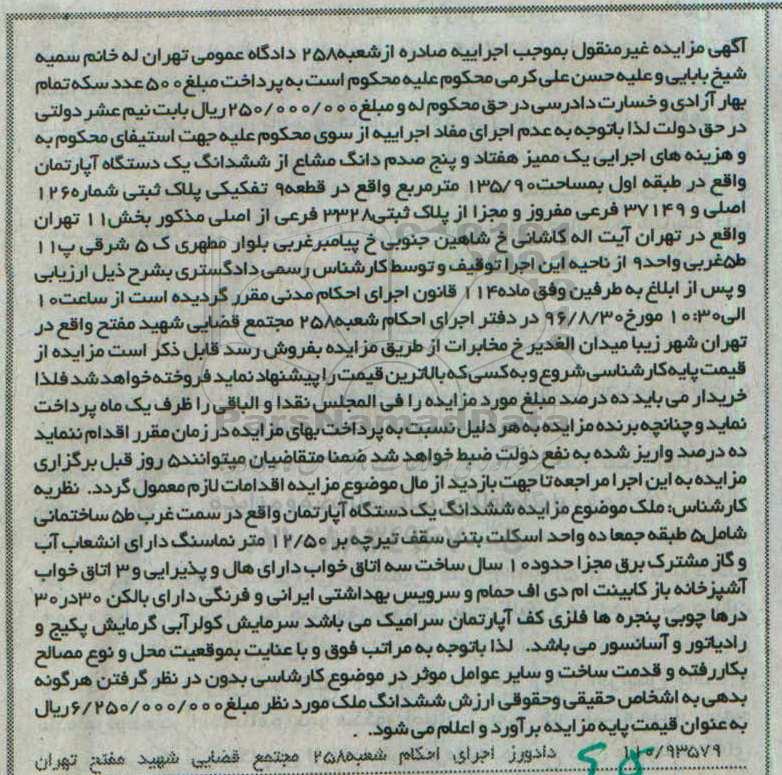 آگهی مزایده غیرمنقول بموجب اجراییه صادره ازشعبه۲۵۸ دادگاه عمومی تهران له خانم سمیه
شیخ بابایی و علیه حسن علی کرمی محکوم علیه محکوم است به پرداخت مبلغ۵۰۰ عدد سکه تمام
بهار آزادی و خسارت دادرسی در حق محکوم له و مبلغ۲۵۰/۰۰۰/۰۰۰ریال بابت نیم عشر دولتی
در حق دولت لذا باتوجه به عدم اجرای مفاد اجراییه از سوی محکوم علیه جهت استیفای محکوم به
و هزینه های اجرایی یک ممیز هفتاد و پنج صدم دانگ مشاع از ششدانگ یک دستگاه آپارتمان
واقع در طبقه اول بمساحت۱۳۵/۹۰ مترمربع واقع در قطعه۹ تفکیکی پلاک ثبتی شماره۱۲۶
اصلی و ۳۷۱۴۹ فرعی مفروز و مجزا از پلاک ثبتی۳۳۲۸ فرعی از اصلی مذکور بخش۱۱ تهران
واقع در تهران آیت اله کاشانی خ شاهین جنوبی خ پیامبرغربی بلوار مطهری ک ۵ شرقی پ۱۱
ط۵غربی واحد۹ از ناحیه این اجرا توقیف و توسط کارشناس رسمی دادگستری بشرح ذیل ارزیابی
و پس از ابلاغ به طرفین وفق ماده۱۱۴ قانون اجرای احکام مدنی مقرر گردیده است از ساعت۱۰
الی۱۰:۳۰ مورخ۹۶/۸/۳۰ در دفتر اجرای احکام شعبه۲۵۸ مجتمع قضایی شهید مفتح واقع در
تهران شهر زیبا میدان الغدیر خ مخابرات از طریق مزایده بفروش رسد قابل ذکر است مزایده از
قیمت پایه کارشناسی شروع و به کسی که بالاترین قیمت را پیشنهاد نماید فروخته خواهد شد فلذا
خریدار می باید ده درصد مبلغ مورد مزایده را فی المجلس نقدا و الباقی را ظرف یک ماه پرداخت
نماید و چنانچه برنده مزایده به هر دلیل نسبت به پرداخت بهای مزایده در زمان مقرر اقدام ننماید
ده درصد واریز شده به نفع دولت ضبط خواهد شد ضمنا متقاضیان میتوانند۵ روز قبل برگزاری
مزایده به این اجرا مراجعه تا جهت بازدید از مال موضوع مزایده اقدامات لازم معمول گردد. نظریه
کارشناس: ملک موضوع مزایده ششدانگ یک دستگاه آپارتمان واقع در سمت غرب ط۵ ساختمانی
شامل۵ طبقه جمعا ده واحد اسکلت بتنی سقف تیرچه بر ۱۲/۵۰ متر نماسنگ دارای انشعاب آب
و گاز مشترک برق مجزا حدود۱۰ سال ساخت سه اتاق خواب دارای هال و پذیرایی و۳ اتاق خواب
آشپزخانه باز کابینت ام دی اف حمام و سرویس بهداشتی ایرانی و فرنگی دارای بالکن ۳۰در۳۰
درها چوبی پنجره ها فلزی کف آپارتمان سرامیک می باشد سرمایش کولرآبی گرمایش پکیج و
رادیاتور و آسانسور می باشد. لذا باتوجه به مراتب فوق و با عنایت بموقعیت محل و نوع مصالح
بکاررفته و قدمت ساخت و سایر عوامل موثر در موضوع کارشاسی بدون در نظر گرفتن هرگونه
بدهی به اشخاص حقیقی وحقوقی ارزش ششدانگ ملک مورد نظر مبلغ۶/۲۵۰/۰۰۰/۰۰۰ریال
به عنوان قیمت پایه مزایده برآورد و اعلام می شود.
۱۱۰/۹۳۵۷۹ دادورز اجرای احکام شعبه۲۵۸ مجتمع قضایی شهید مفتح تهران